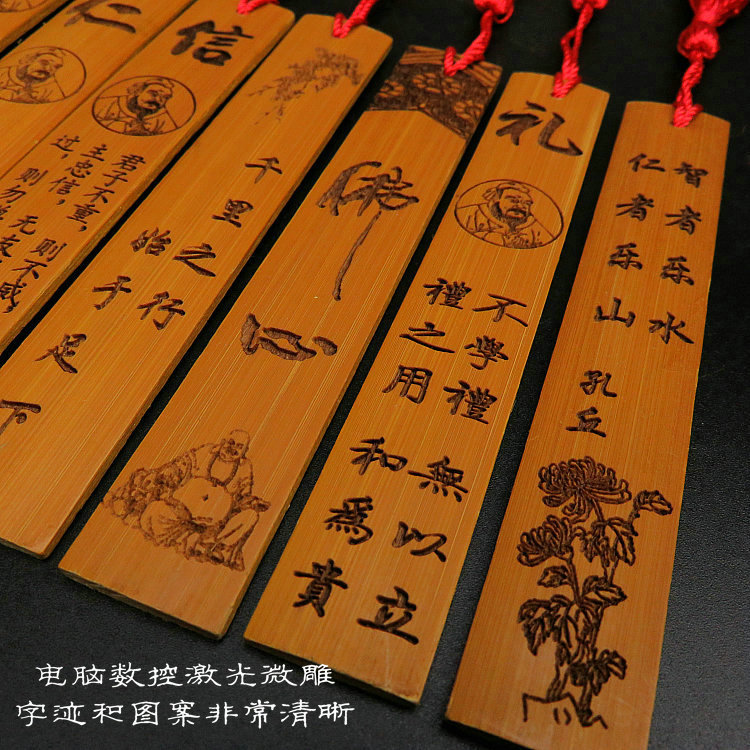 仁
信
君子不重，则不威，
主忠信，无友
过，则勿
千里之行
始于足下
佛心
礼
不學禮無以立
禮之用和爲貴
智者乐水
仁者乐山
孔丘
电脑数控激光微雕
字迹和图案非常清晰